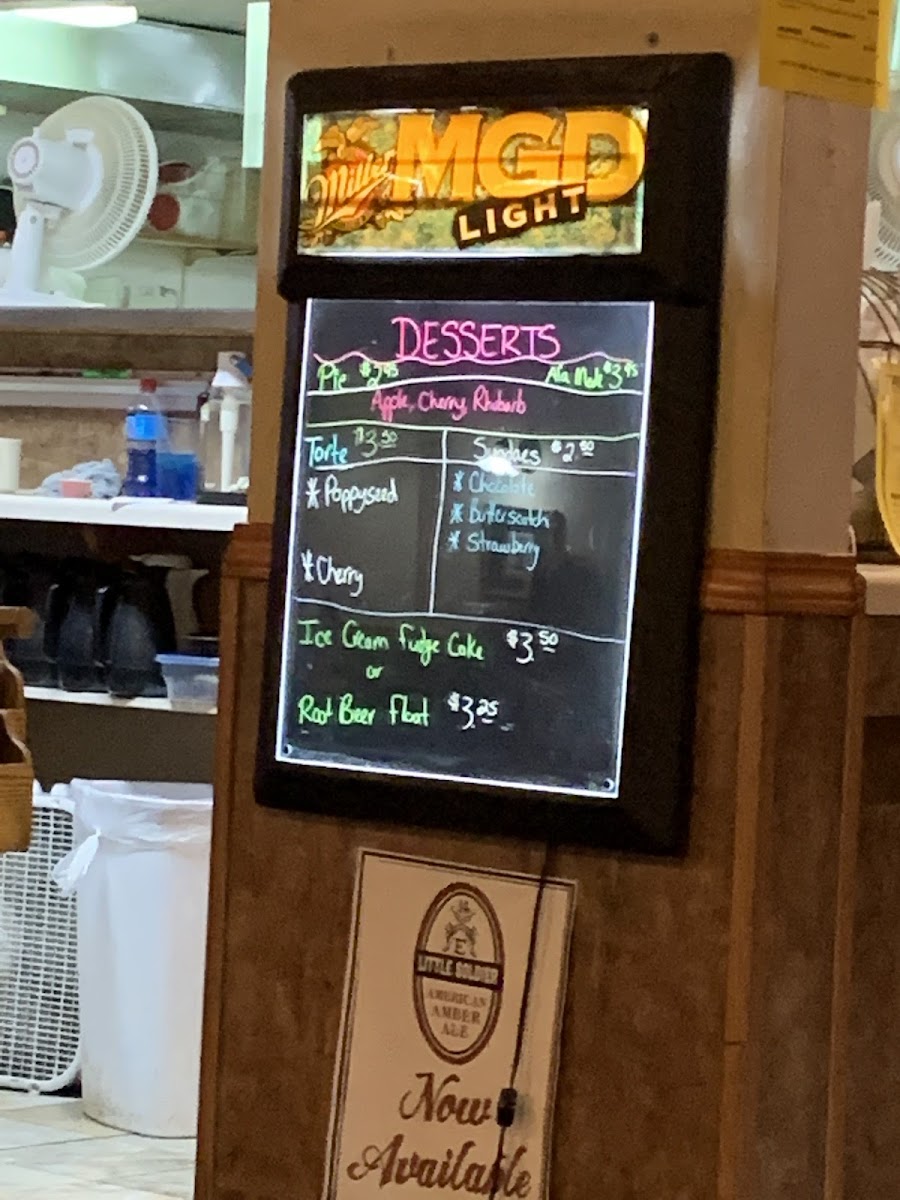 Miller MGD
LIGHT
DESSERTS
Pie $2.95 Ala Mode $3.95
Apple, Cherry, Rhubarb
Torte $3.50
Sundaes $2.50
* Poppyseed
* Cherry
* Chocolate
* Butterscotch
* Strawberry
Ice Cream Fudge Cake $3.50
or
Root Beer Float $3.25
E
LITTLE SOLDIER
AMERICAN
AMBER
ALE
Now
Available